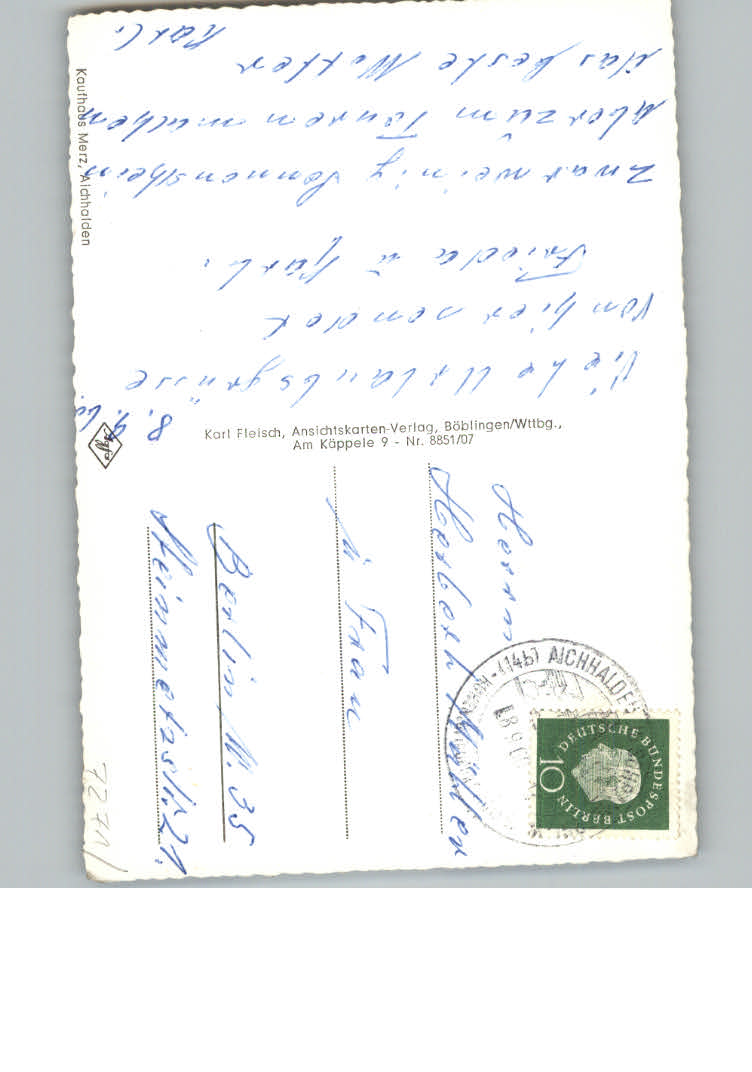 8. 9. 60
Viele Urlaubsgrüsse
von hier sendet
Frieda u Karl.
Zwar wenig Sonnenschein
aber zum Touren machen
das beste Wetter
Karl.
Kaufhaus Merz, Aichhalden
Karl Fleisch, Ansichtskarten-Verlag, Böblingen/Wttbg.,
Am Käppele 9 - Nr. 8851/07
Herrn
Herbert Müller
u Frau
Berlin W. 35
Steinmetzstr. 21.
(14b) AICHHALDEN
DEUTSCHE BUNDESPOST BERLIN
10
7271/